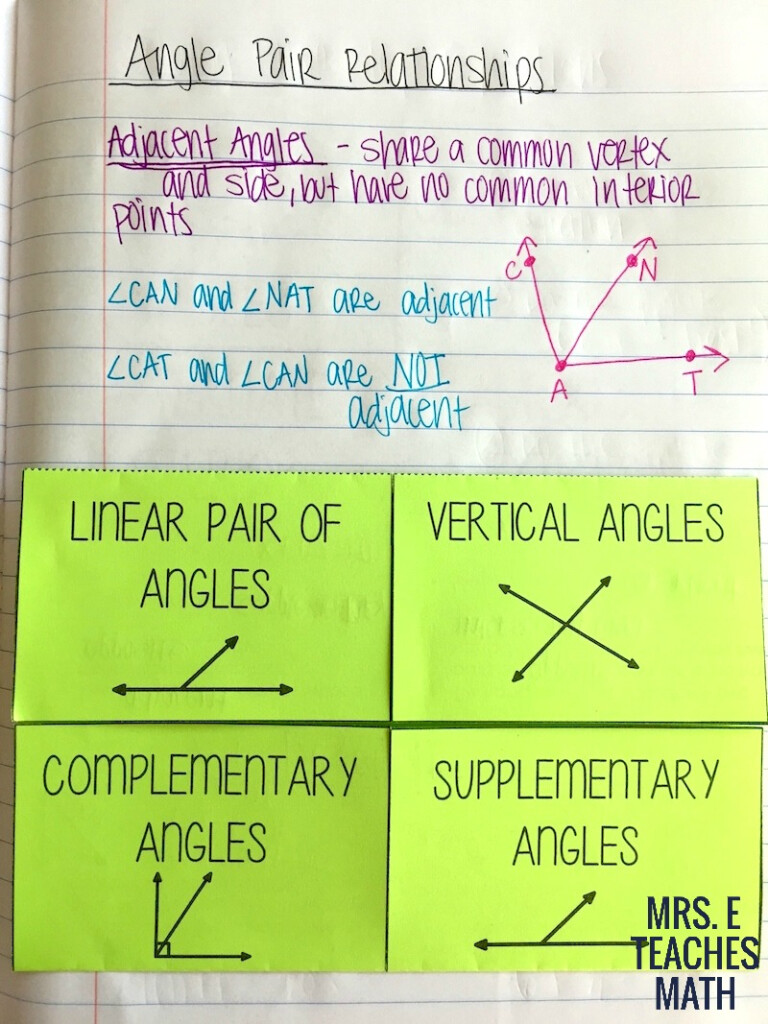 Angle Pair Relationships
Adjacent Angles - share a common vertex
and side, but have no common interior
points
∠CAN and ∠NAT are adjacent
∠CAT and ∠CAN are NOT
adjacent
C
N
A
T
LINEAR PAIR OF
ANGLES
VERTICAL ANGLES
COMPLEMENTARY
ANGLES
SUPPLEMENTARY
ANGLES
MRS. E
TEACHES
MATH